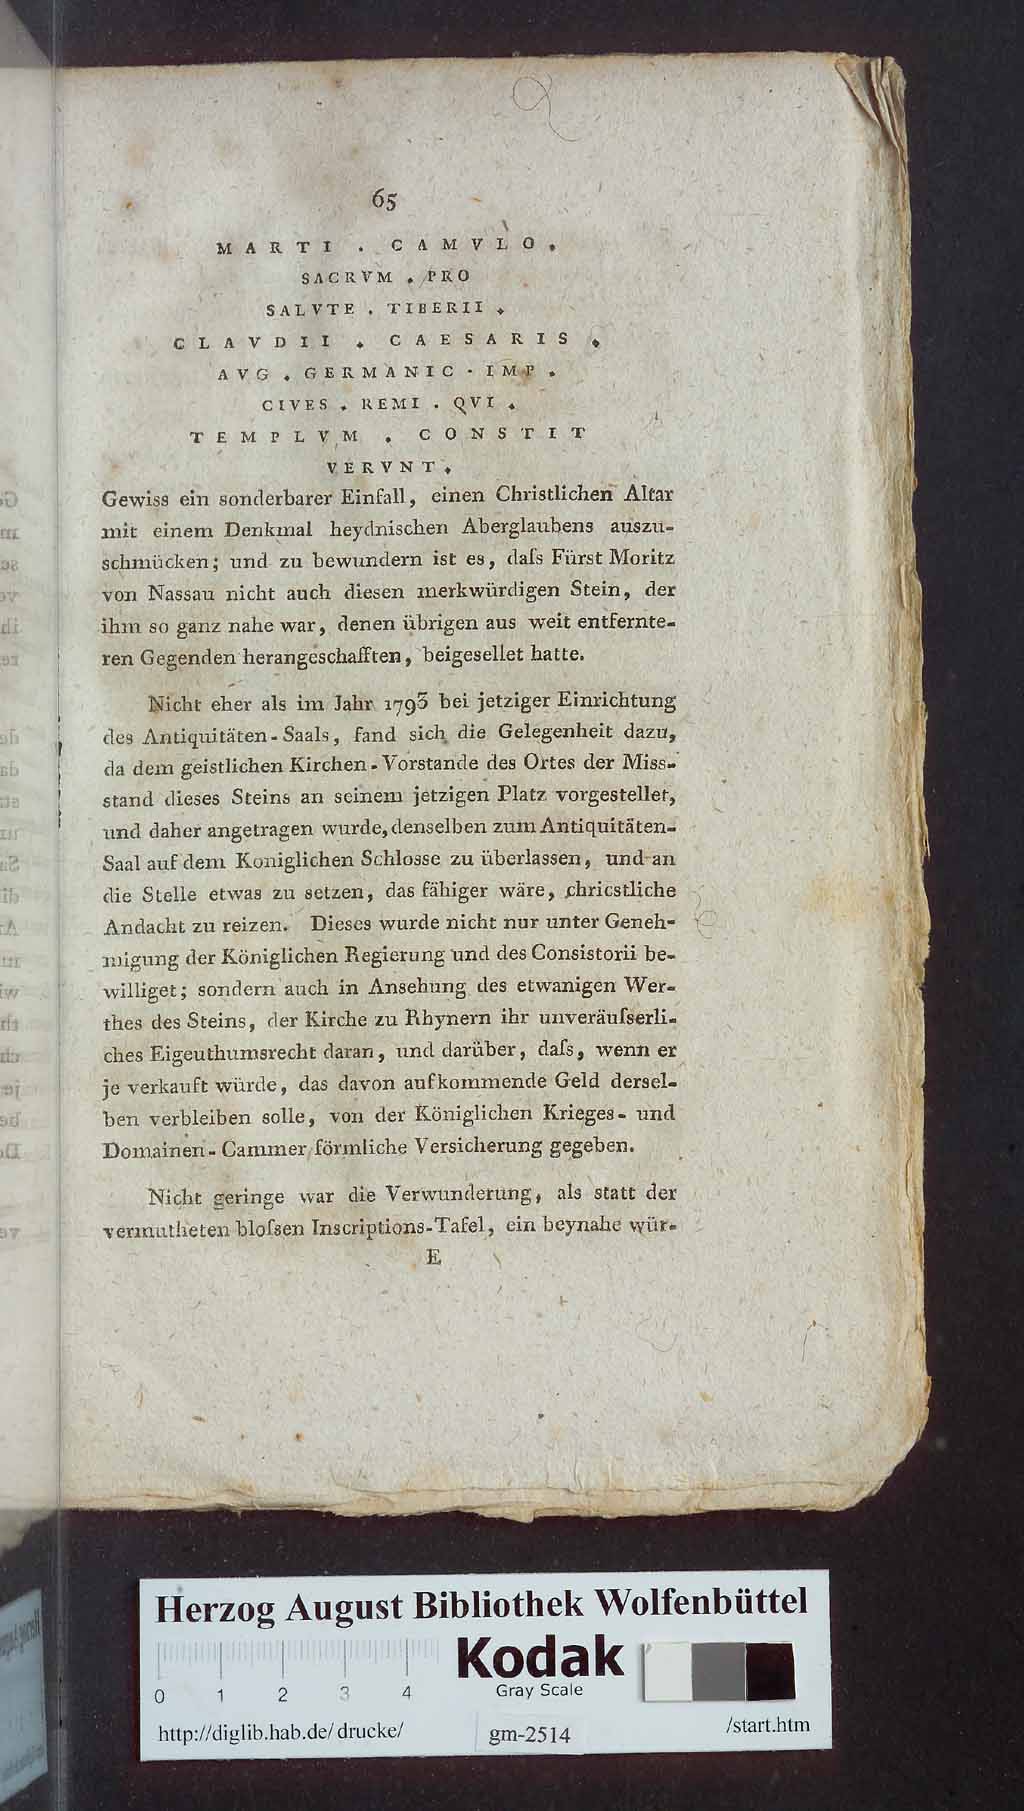 65
MARTI . CAMVLO .
SACRVM . PRO
SALVTE . TIBERII .
CLAVDII . CAESARIS .
AVG . GERMANIC . IMP .
CIVES . REMI . QVI .
TEMPLVM . CONSTIT
VERVNT .
Gewiss ein sonderbarer Einfall, einen Christlichen Altar
mit einem Denkmal heydnischen Aberglaubens auszu-
schmücken; und zu bewundern ist es, daſs Fürst Moritz
von Nassau nicht auch diesen merkwürdigen Stein, der
ihm so ganz nahe war, denen übrigen aus weit entfernte-
ren Gegenden herangeschafften, beigesellet hatte.
Nicht eher als im Jahr 1793 bei jetziger Einrichtung
des Antiquitäten-Saals, fand sich die Gelegenheit dazu,
da dem geistlichen Kirchen-Vorstande des Ortes der Miss-
stand dieses Steins an seinem jetzigen Platz vorgestellet,
und daher angetragen wurde, denselben zum Antiquitäten-
Saal auf dem Koniglichen Schlosse zu überlassen, und an
die Stelle etwas zu setzen, das fähiger wäre, chriestliche
Andacht zu reizen. Dieses wurde nicht nur unter Geneh-
migung der Königlichen Regierung und des Consistorii be-
williget; sondern auch in Ansehung des etwanigen Wer-
thes des Steins, der Kirche zu Rhynern ihr unveräuſserli-
ches Eigeuthumsrecht daran, und darüber, daſs, wenn er
je verkauft würde, das davon aufkommende Geld dersel-
ben verbleiben solle, von der Königlichen Krieges- und
Domainen-Cammer förmliche Versicherung gegeben.
Nicht geringe war die Verwunderung, als statt der
vermutheten bloſsen Inscriptions-Tafel, ein beynahe wür-
E
Herzog August Bibliothek Wolfenbüttel
Kodak
Gray Scale
0 1 2 3 4
http://diglib.hab.de/drucke/ gm-2514 /start.htm